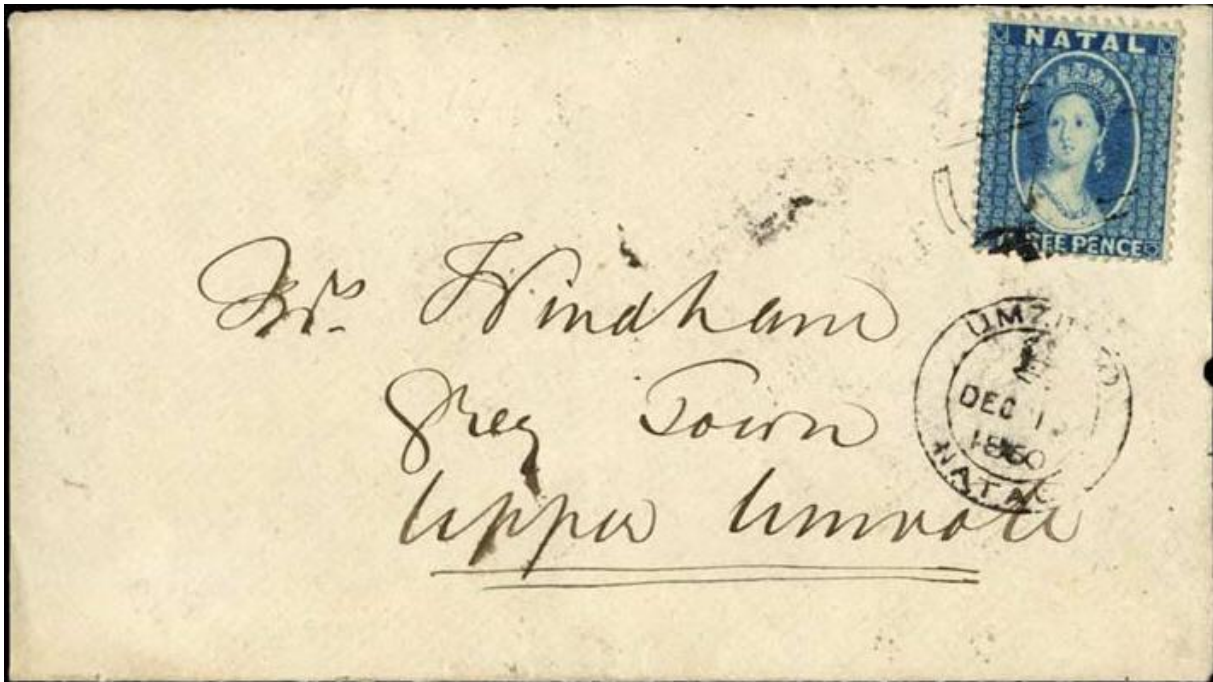 NATAL
THREE PENCE
Mrs. Windham
Grey Town
Upper Umvoti
DEC 1
1860
NATAL